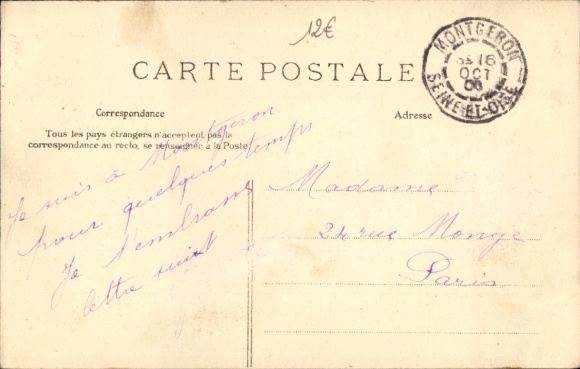 12€
MONTGERON
16
OCT
SEINE-ET-OISE
CARTE POSTALE
Correspondance
Adresse
Tous les pays étrangers n'acceptent pas la
correspondance au recto, se renseigner à la Poste
Je suis à Montgeron
pour quelques temps
Je t'embrasse
lettre suit
Madame
24 rue Monge
Paris